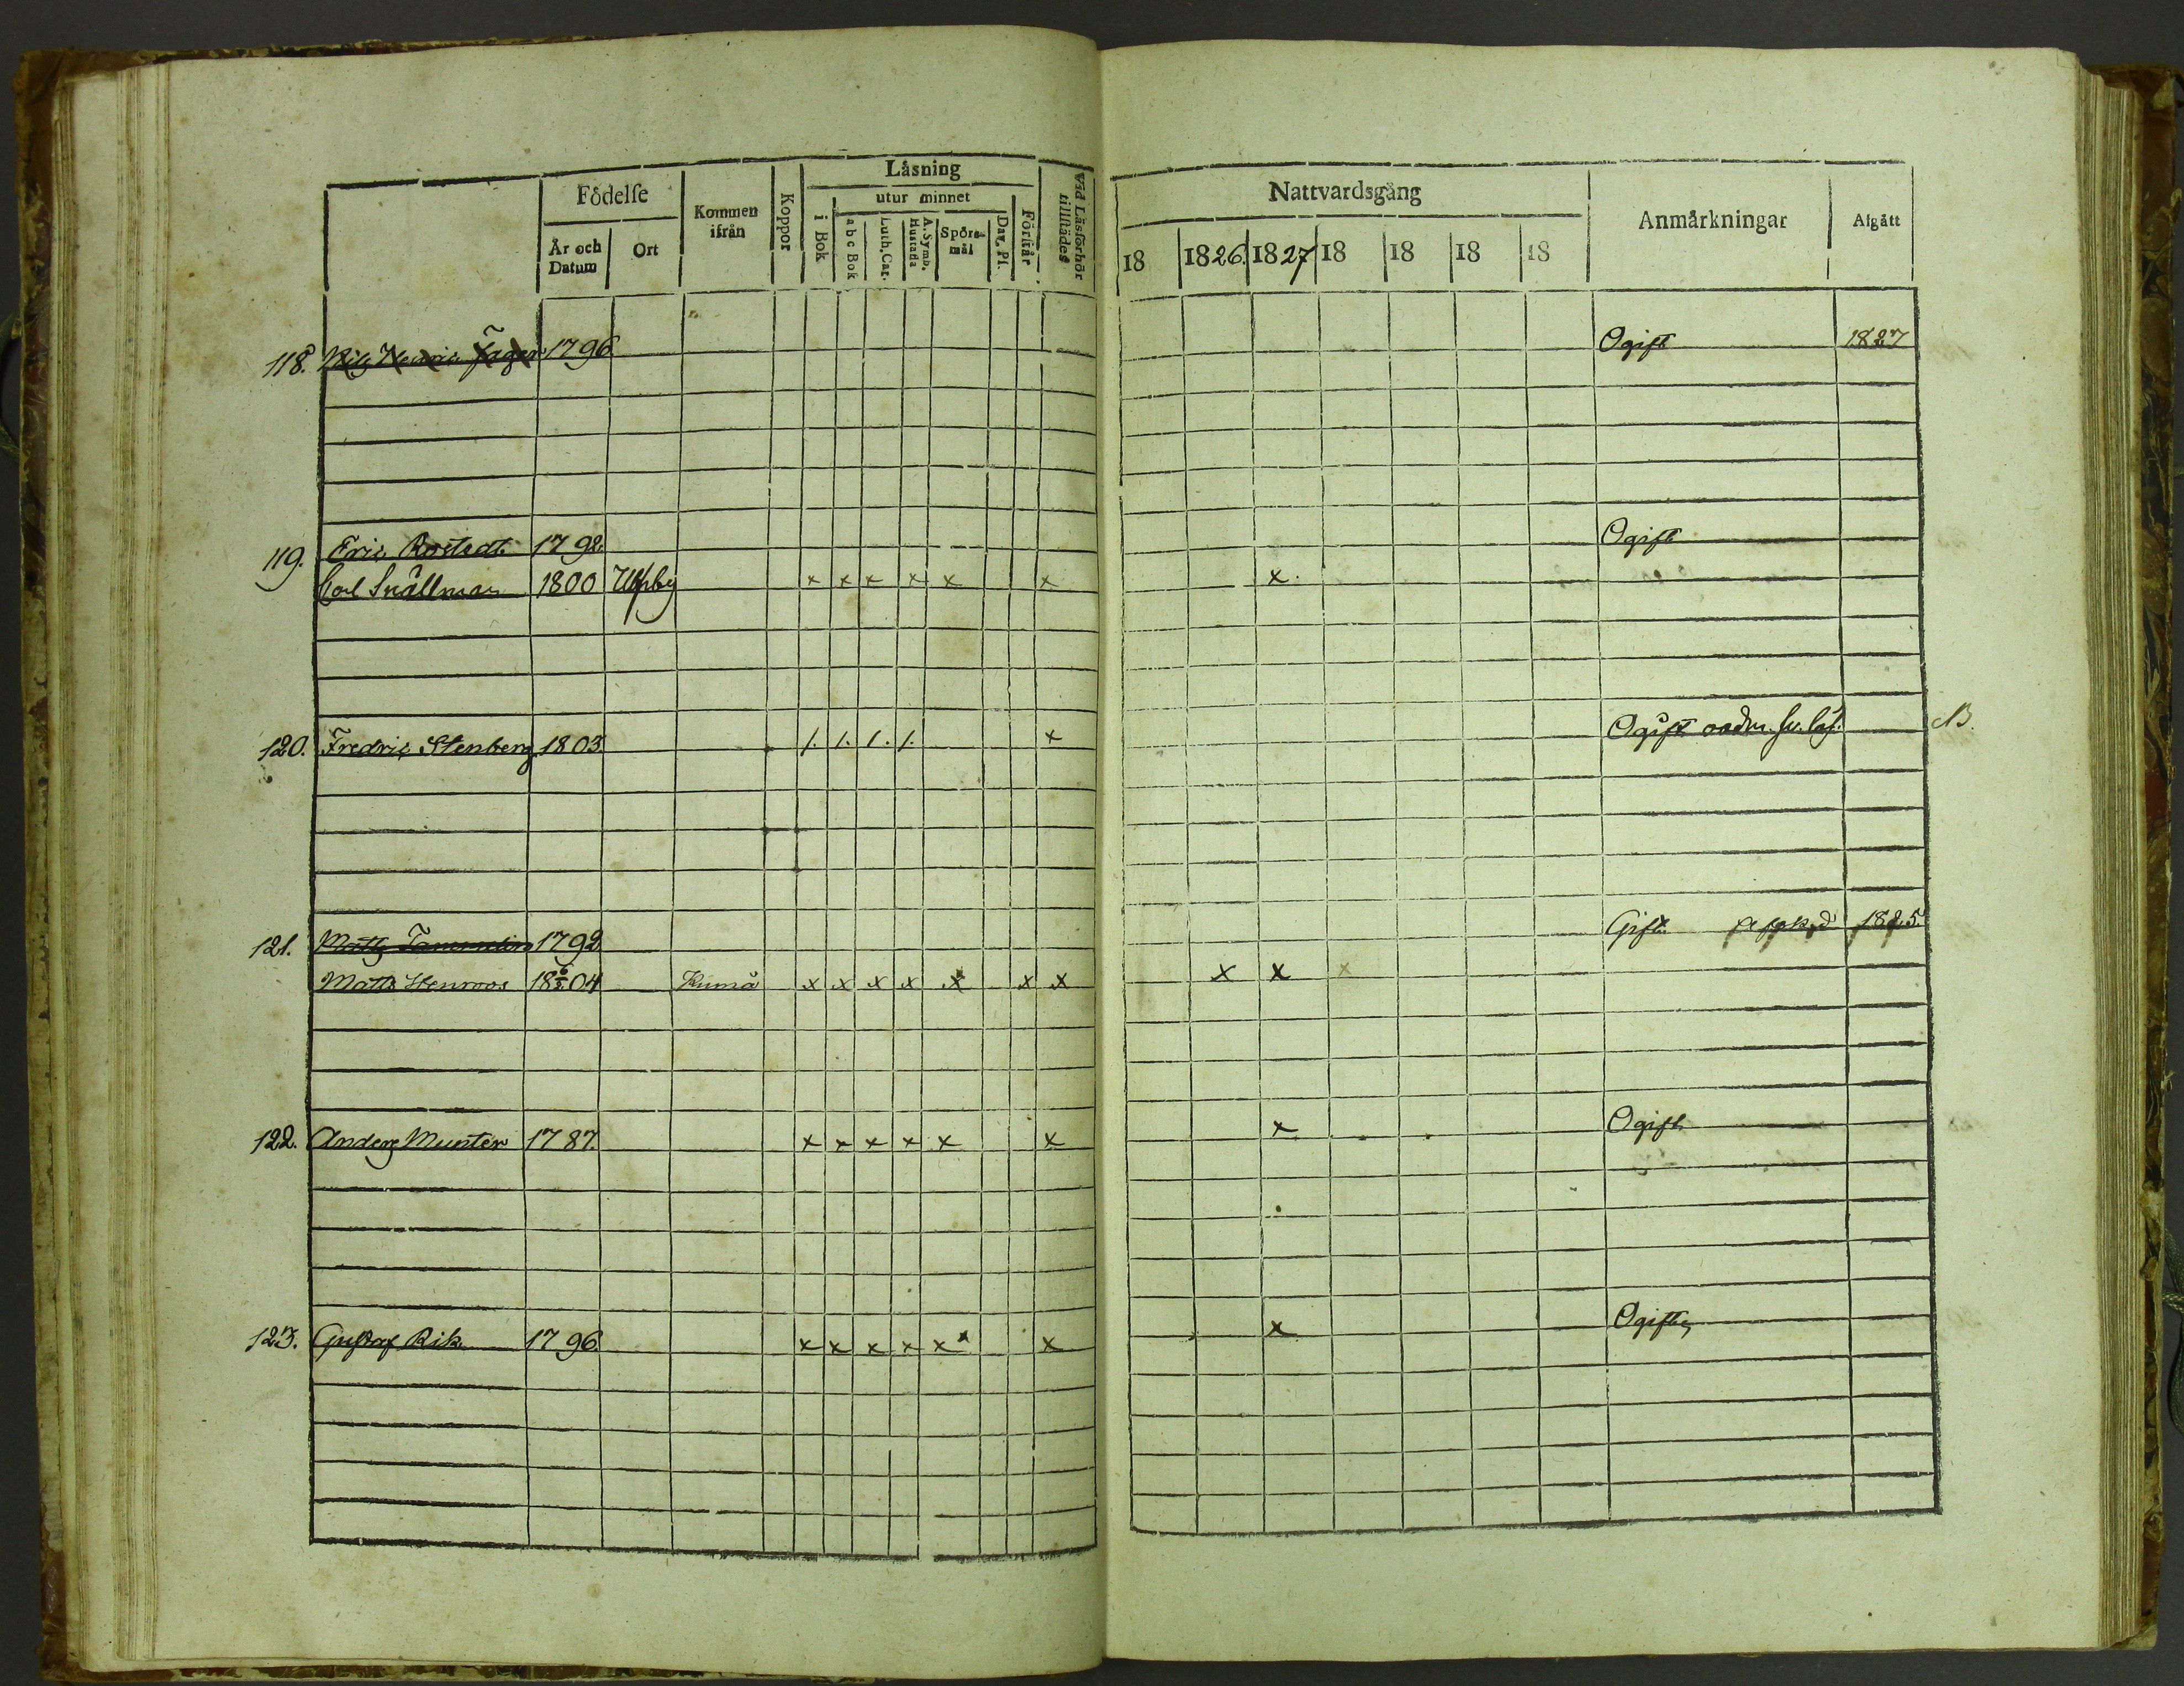 Födelse
År och Datum
Ort
Kommen ifrån
Koppor
Läsning
i Bok
utur minnet
a b c Bok
Luth. Cat.
A. Symb. Hustafla
Spörsmål
Dav. Ps.
Förstår
Vid Läsförhör tillstädes
Nattvardsgång
18 1826. 1827 18 18 18 18
Anmärkningar
Afgått
118. Nils Henric Jager 1796 Ogift 1827
119. Eric Rostedt 1792. Ogift
Carl Snällman 1800 Ulfsby x x x x x x x.
120. Fredric Stenberg 1803 1. 1. 1. 1. x Ogift NB.
121. Matts Tammelin 1792 Gift. 1825.
Matts Stenroos 04 Kumå x x x x x x x x x x
122. Anders Munter 1787. x x x x x x x Ogift
123. Gustaf Rik 1796. x x x x x x x Ogift